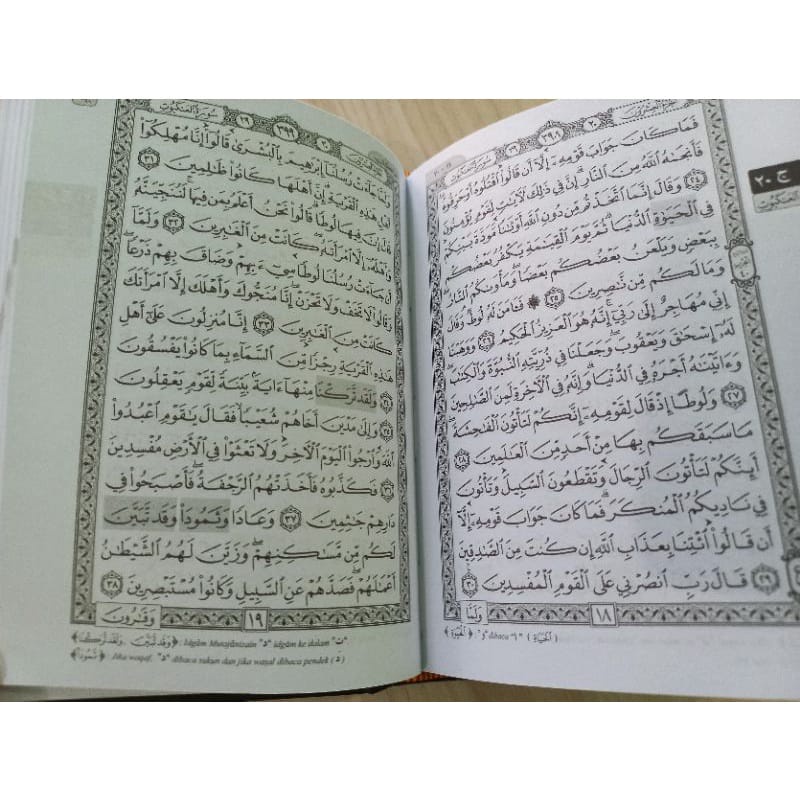 جزء العشرون ٢٠ ٣٩٨ ٢٩ سورة العنكبوت
فَمَا كَانَ جَوَابَ قَوْمِهِۦٓ إِلَّآ أَن قَالُوا۟ ٱقْتُلُوهُ أَوْ حَرِّقُوهُ
فَأَنجَىٰهُ ٱللَّهُ مِنَ ٱلنَّارِ ۚ إِنَّ فِى ذَٰلِكَ لَـَٔايَٰتٍ لِّقَوْمٍ يُؤْمِنُونَ
﴿٢٤﴾ وَقَالَ إِنَّمَا ٱتَّخَذْتُم مِّن دُونِ ٱللَّهِ أَوْثَٰنًا مَّوَدَّةَ بَيْنِكُمْ
فِى ٱلْحَيَوٰةِ ٱلدُّنْيَا ۖ ثُمَّ يَوْمَ ٱلْقِيَٰمَةِ يَكْفُرُ بَعْضُكُم
بِبَعْضٍ وَيَلْعَنُ بَعْضُكُم بَعْضًا وَمَأْوَىٰكُمُ ٱلنَّارُ
وَمَا لَكُم مِّن نَّٰصِرِينَ ﴿٢٥﴾ ۞ فَـَٔامَنَ لَهُۥ لُوطٌ ۘ وَقَالَ
إِنِّى مُهَاجِرٌ إِلَىٰ رَبِّىٓ ۖ إِنَّهُۥ هُوَ ٱلْعَزِيزُ ٱلْحَكِيمُ ﴿٢٦﴾ وَوَهَبْنَا
لَهُۥٓ إِسْحَٰقَ وَيَعْقُوبَ وَجَعَلْنَا فِى ذُرِّيَّتِهِ ٱلنُّبُوَّةَ وَٱلْكِتَٰبَ
وَءَاتَيْنَٰهُ أَجْرَهُۥ فِى ٱلدُّنْيَا ۖ وَإِنَّهُۥ فِى ٱلْـَٔاخِرَةِ لَمِنَ ٱلصَّٰلِحِينَ
﴿٢٧﴾ وَلُوطًا إِذْ قَالَ لِقَوْمِهِۦٓ إِنَّكُمْ لَتَأْتُونَ ٱلْفَٰحِشَةَ
مَا سَبَقَكُم بِهَا مِنْ أَحَدٍ مِّنَ ٱلْعَٰلَمِينَ ﴿٢٨﴾
أَئِنَّكُمْ لَتَأْتُونَ ٱلرِّجَالَ وَتَقْطَعُونَ ٱلسَّبِيلَ وَتَأْتُونَ
فِى نَادِيكُمُ ٱلْمُنكَرَ ۖ فَمَا كَانَ جَوَابَ قَوْمِهِۦٓ إِلَّآ
أَن قَالُوا۟ ٱئْتِنَا بِعَذَابِ ٱللَّهِ إِن كُنتَ مِنَ ٱلصَّٰدِقِينَ
﴿٢٩﴾ قَالَ رَبِّ ٱنصُرْنِى عَلَى ٱلْقَوْمِ ٱلْمُفْسِدِينَ ﴿٣٠﴾
١٨ وَلَمَّا
﴿ٱلْحَيَوٰةِ﴾ : "و" dibaca "ا" (ٱلْحَيَاةِ)
ج ٢٠
العنكبوت
سورة العنكبوت ٢٩ ٣٩٩ ٢٠
وَلَمَّا جَآءَتْ رُسُلُنَآ إِبْرَٰهِيمَ بِٱلْبُشْرَىٰ قَالُوٓا۟ إِنَّا مُهْلِكُوٓا۟
أَهْلِ هَٰذِهِ ٱلْقَرْيَةِ ۖ إِنَّ أَهْلَهَا كَانُوا۟ ظَٰلِمِينَ ﴿٣١﴾
قَالَ إِنَّ فِيهَا لُوطًا ۚ قَالُوا۟ نَحْنُ أَعْلَمُ بِمَن فِيهَا ۖ لَنُنَجِّيَنَّهُۥ
وَأَهْلَهُۥٓ إِلَّا ٱمْرَأَتَهُۥ كَانَتْ مِنَ ٱلْغَٰبِرِينَ ﴿٣٢﴾ وَلَمَّآ
أَن جَآءَتْ رُسُلُنَا لُوطًا سِىٓءَ بِهِمْ وَضَاقَ بِهِمْ ذَرْعًا
وَقَالُوا۟ لَا تَخَفْ وَلَا تَحْزَنْ ۖ إِنَّا مُنَجُّوكَ وَأَهْلَكَ إِلَّا ٱمْرَأَتَكَ
كَانَتْ مِنَ ٱلْغَٰبِرِينَ ﴿٣٣﴾ إِنَّا مُنزِلُونَ عَلَىٰٓ أَهْلِ
هَٰذِهِ ٱلْقَرْيَةِ رِجْزًا مِّنَ ٱلسَّمَآءِ بِمَا كَانُوا۟ يَفْسُقُونَ
﴿٣٤﴾ وَلَقَد تَّرَكْنَا مِنْهَآ ءَايَةًۢ بَيِّنَةً لِّقَوْمٍ يَعْقِلُونَ
﴿٣٥﴾ وَإِلَىٰ مَدْيَنَ أَخَاهُمْ شُعَيْبًا فَقَالَ يَٰقَوْمِ ٱعْبُدُوا۟
ٱللَّهَ وَٱرْجُوا۟ ٱلْيَوْمَ ٱلْـَٔاخِرَ وَلَا تَعْثَوْا۟ فِى ٱلْأَرْضِ مُفْسِدِينَ
﴿٣٦﴾ فَكَذَّبُوهُ فَأَخَذَتْهُمُ ٱلرَّجْفَةُ فَأَصْبَحُوا۟ فِى
دَارِهِمْ جَٰثِمِينَ ﴿٣٧﴾ وَعَادًا وَثَمُودَا۟ وَقَد تَّبَيَّنَ
لَكُم مِّن مَّسَٰكِنِهِمْ ۖ وَزَيَّنَ لَهُمُ ٱلشَّيْطَٰنُ
أَعْمَٰلَهُمْ فَصَدَّهُمْ عَنِ ٱلسَّبِيلِ وَكَانُوا۟ مُسْتَبْصِرِينَ ﴿٣٨﴾
١٩ وَقَٰرُونَ
﴿وَقَد تَّبَيَّنَ ، وَلَقَد تَّرَكْنَا﴾ : Idgām Mutajānisain "د" idgām ke dalam "ت"
﴿ثَمُودَا۟﴾ : Jika waqaf: "د" dibaca sukun dan jika waṣal dibaca pendek (دَ)